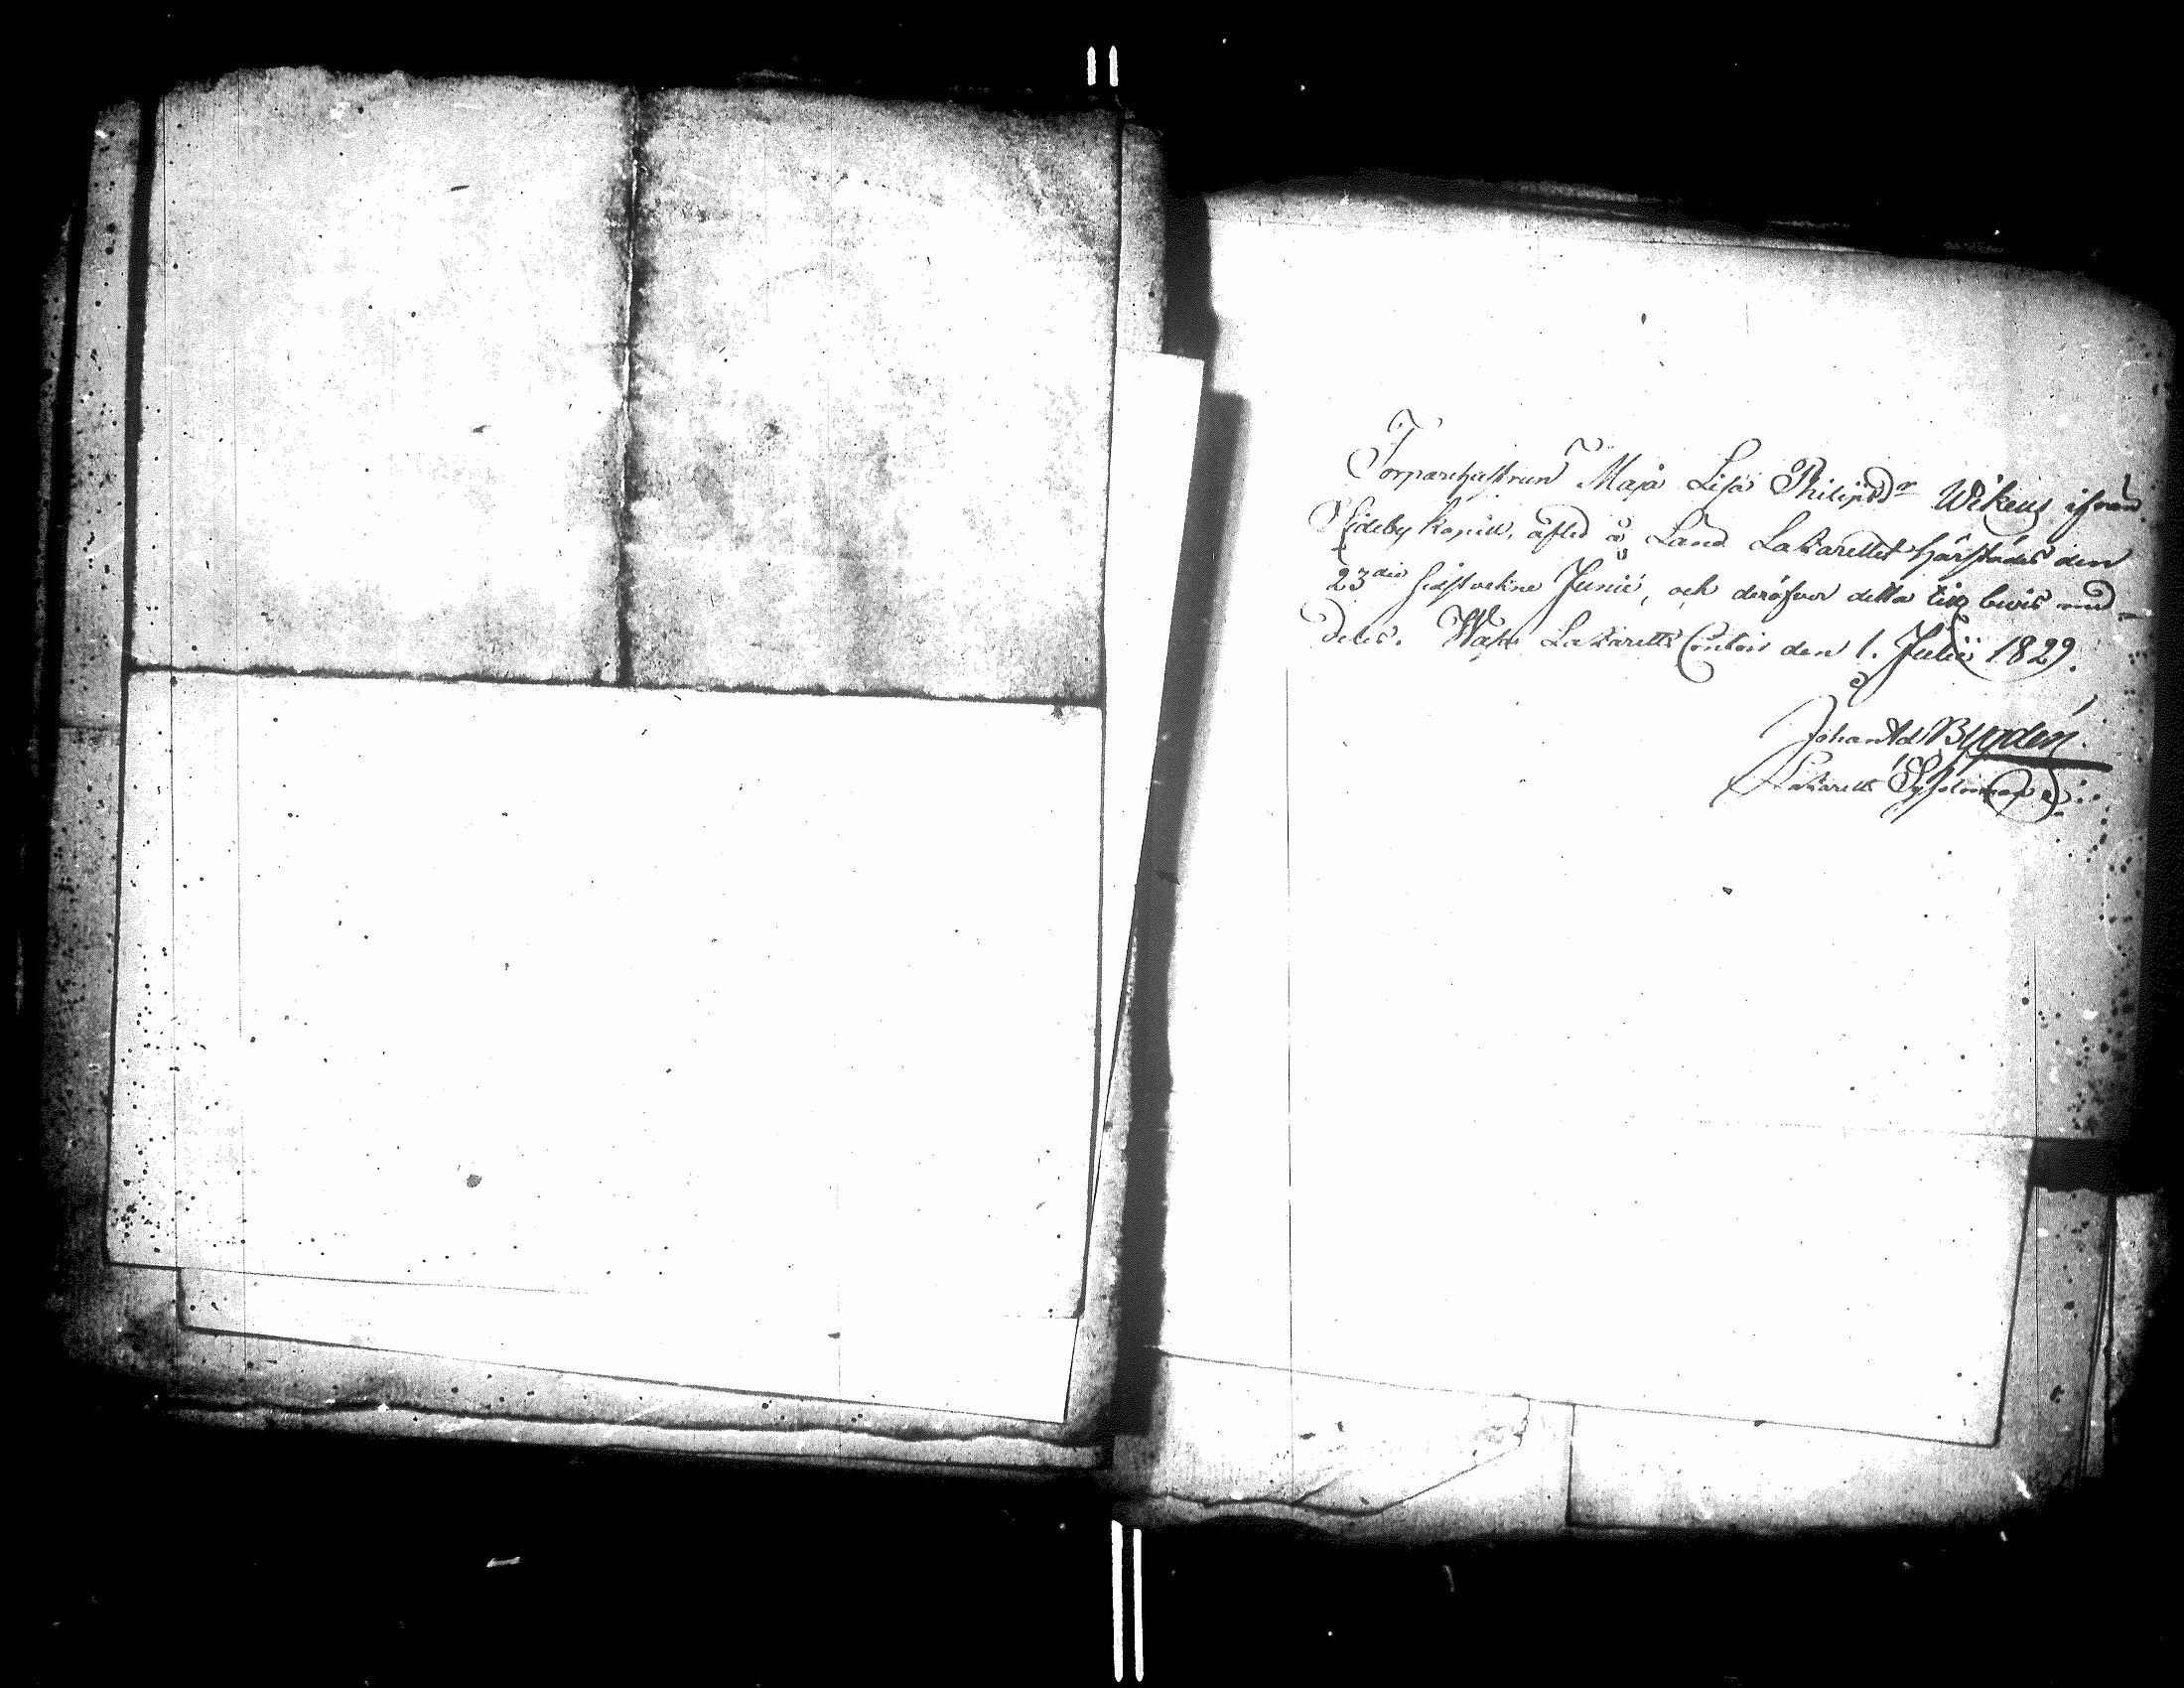 Torparehustrun Maja Lisa Philipsdr Wikens ifrån
Sideby kapell, afled å Land Lazarettet härstädes den
23die sidstvekne Junii, och deröfver detta till bevis med-
delas. Wasa Lazaretts Contoir den 1. Julii 1829.
Johan Ad. Bygdén
Lazaretts Sysloman